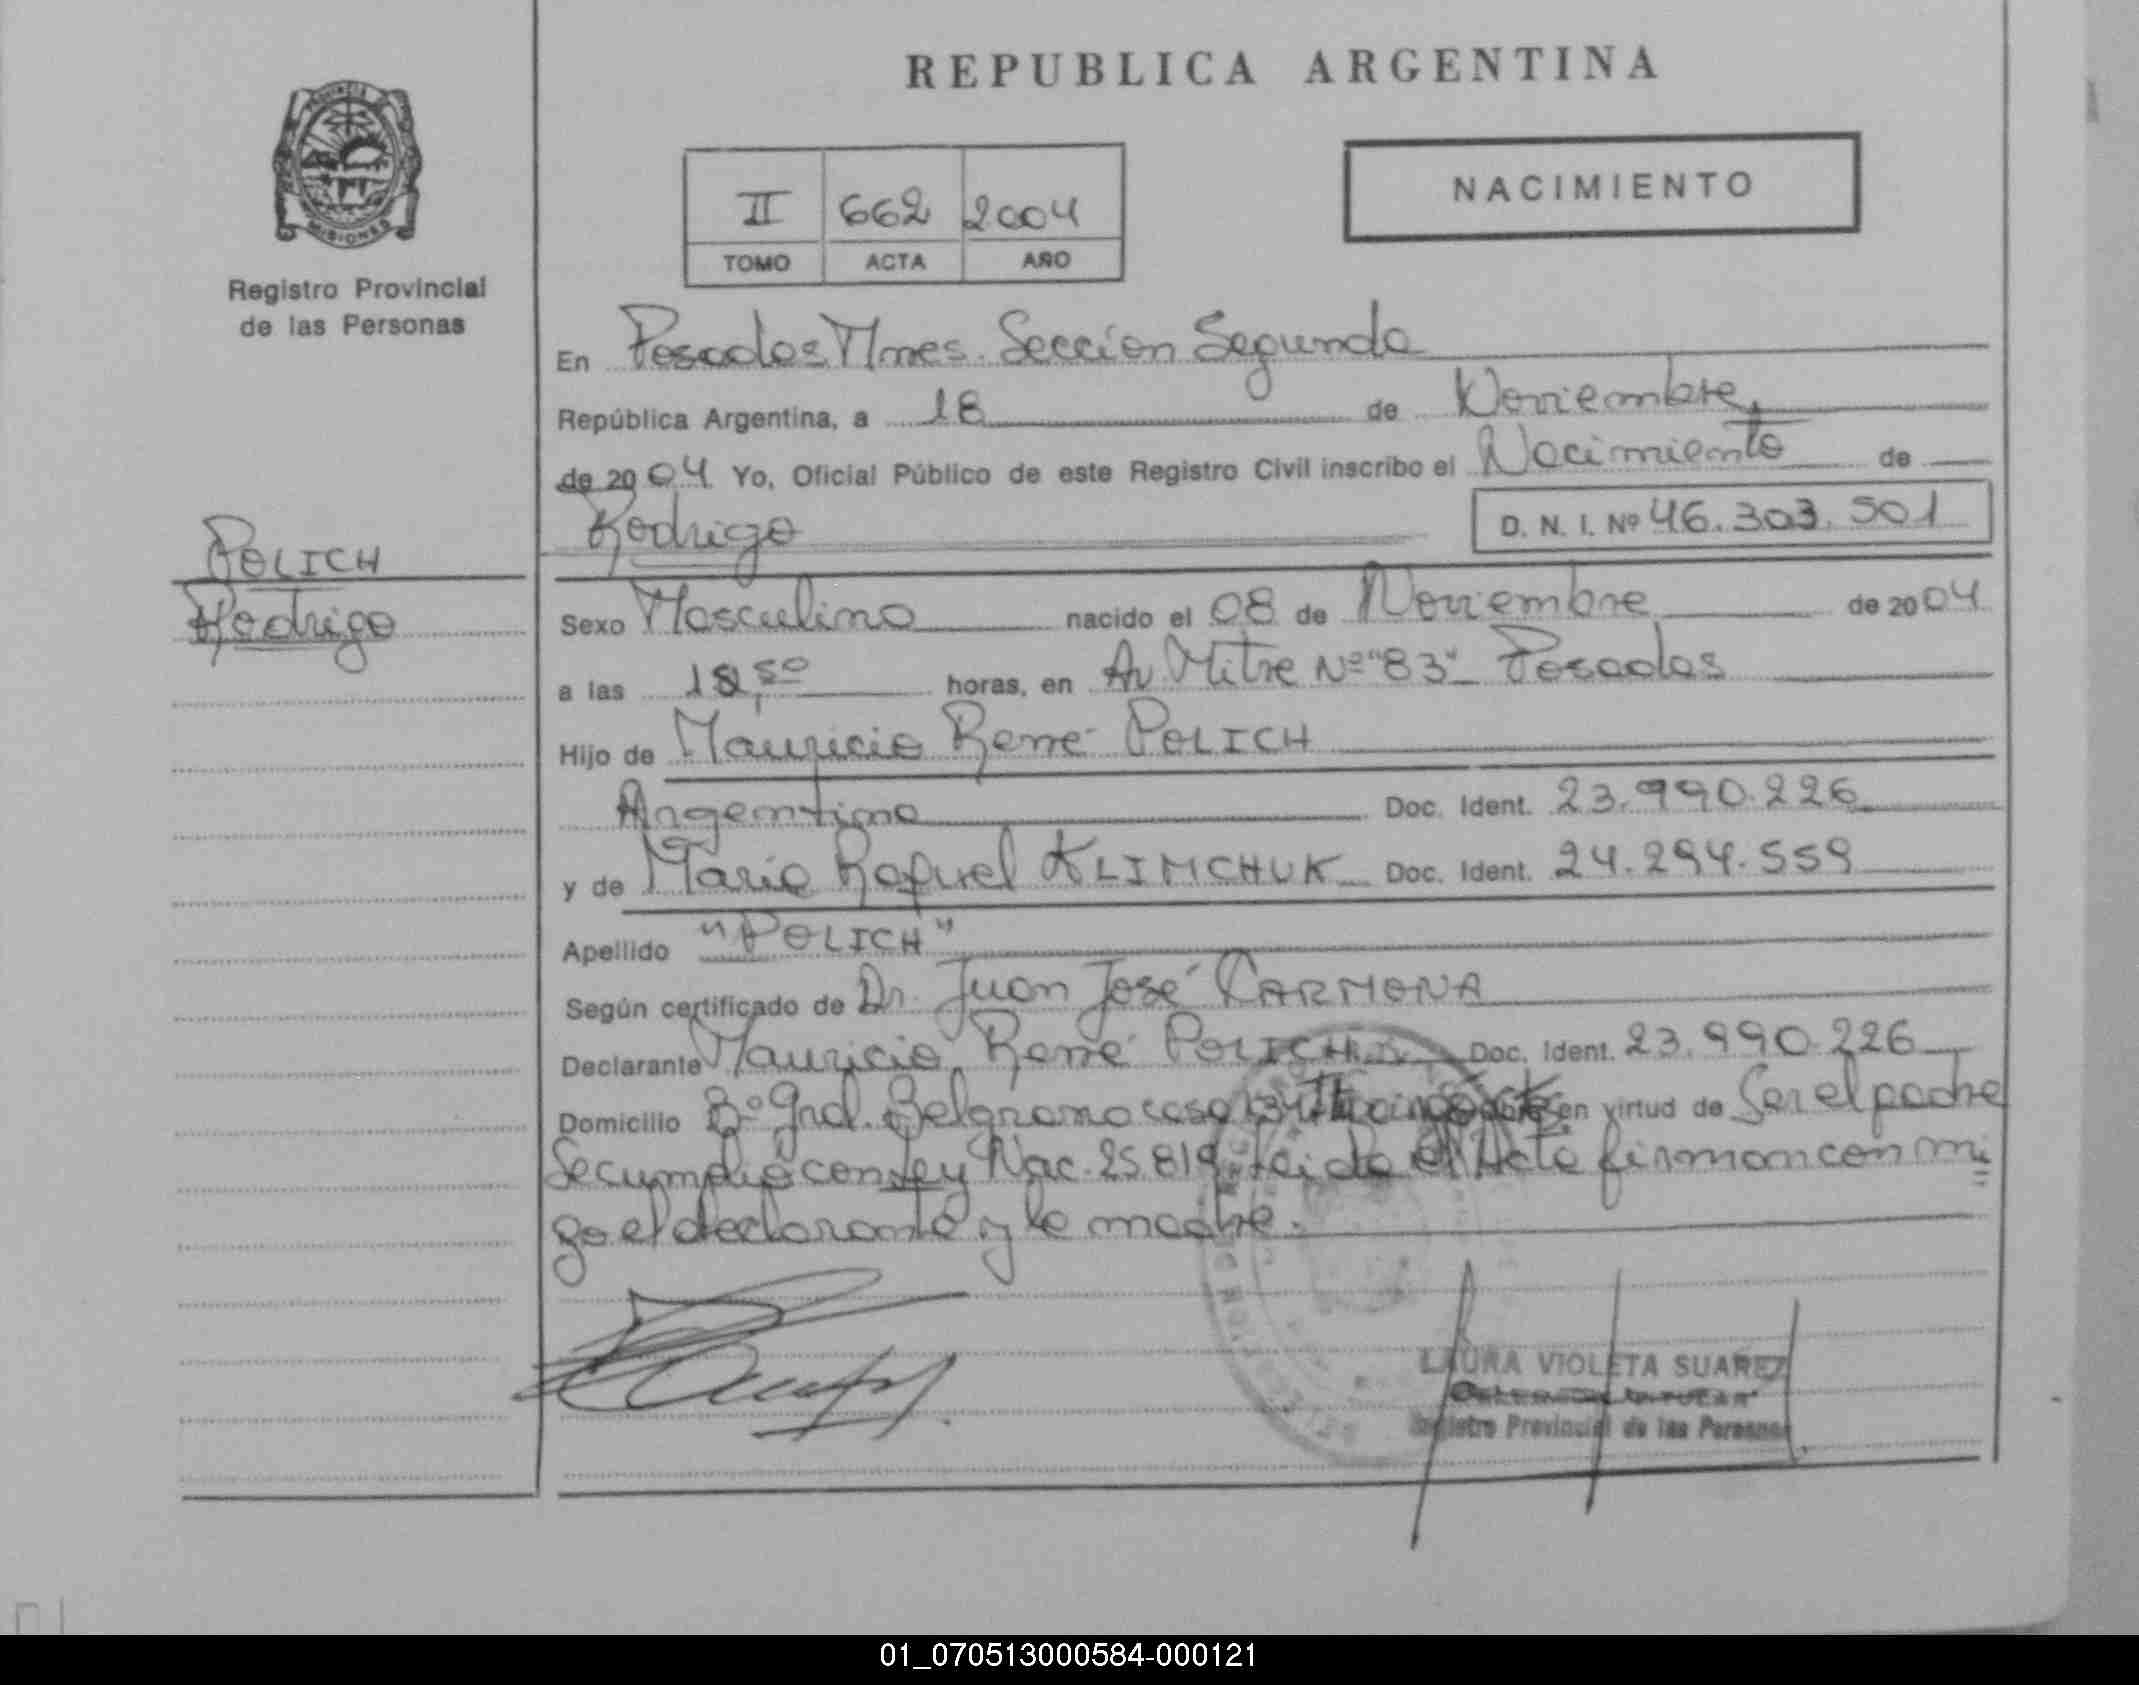 REPUBLICA ARGENTINA
PROVINCIA DE
MISIONES
Registro Provincial
de las Personas
NACIMIENTO
II 662 2004
TOMO ACTA AÑO
En Posadas Mnes. Sección Segunda
República Argentina, a 18 de Noviembre,
de 2004 Yo, Oficial Público de este Registro Civil inscribo el Nacimiento de
Rodrigo D. N. I. Nº 46.303.501
POLICH
Rodrigo
Sexo Masculino nacido el 08 de Noviembre de 2004
a las horas, en Av Mitre Nº "83" Posadas
Hijo de Mauricio René POLICH
Argentino Doc. Ident. 23.990.226
y de María Raquel KLIMCHUK Doc. Ident. 24.294.559
Apellido "POLICH"
Según certificado de Dr. Juan José CARMONA
Declarante Mauricio René POLICH Doc. Ident. 23.990.226
Domicilio Bº Gral. Belgrano casa en virtud de Ser el padre
Se cumplio con Ley Nac. 25.819 Leida el Acta firman con mi
go el declarante y la madre.
LAURA VIOLETA SUAREZ
Registro Provincial de las Personas
01_070513000584-000121